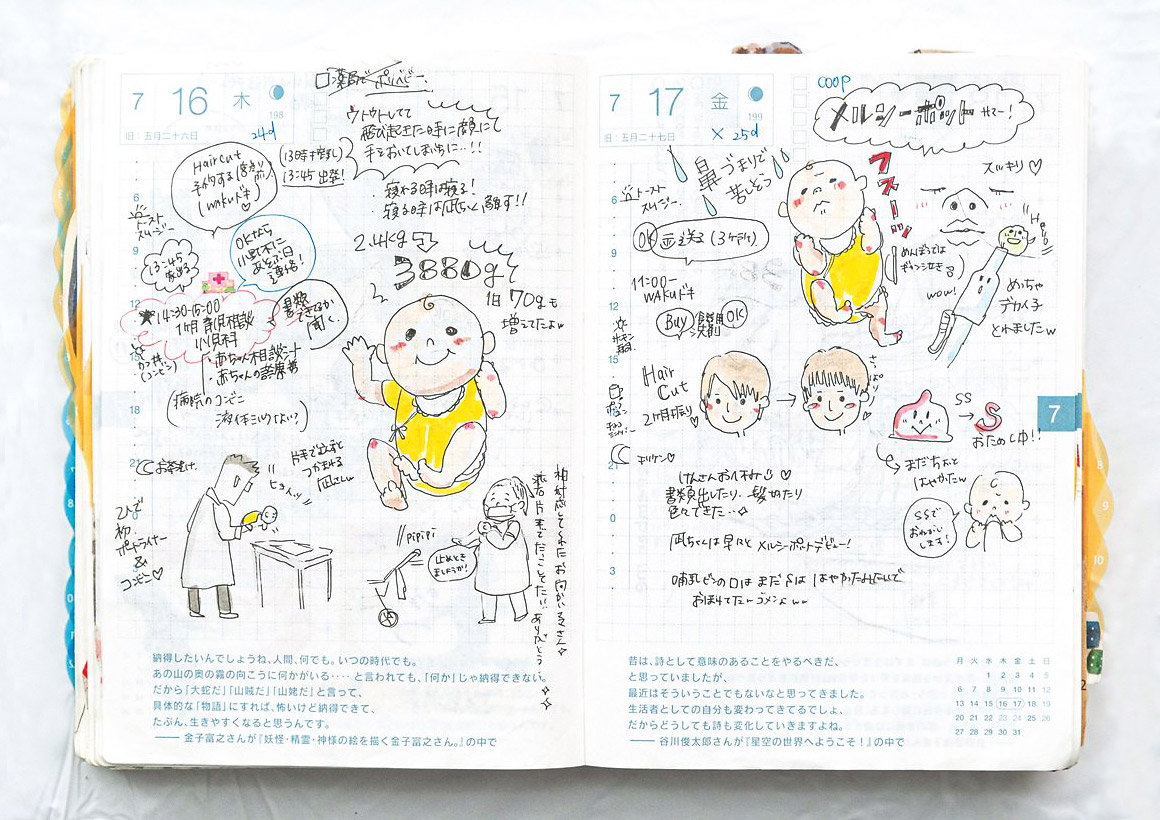 7 16 木
198
旧:五月二十六日
24d
ウトウトしてて
飛び起きた時に顔にて
手をおいてしまいちに…!!
・寝れる時は寝る!
・寝る時は凪ちゃと離す!!
Haircut
予約する
WAKUドキ
(13時半寝し)
13:45 出発!
6
トースト
スムージー
9
13:45
OKなら
連絡!
12
14:30-15:00
1ヶ月育児相談
小児科
・赤ちゃん相談シート
・赤ちゃんの診察券
書類
できてるか
聞く。
カツ丼
(コンビニ)
15
18
病院のコンビニ
液体ミルクはい?
21
お茶漬け。
2.4kg
3880gで
1日70gも
増えてたよw
片手で泣き
つかまれる
凪さんw
ヒョイッ
2人で
初
コンビニ♡
pipipi
止めとき
ましょうか!
相対感してくれたお向かいるさん
ありがとう
納得したいんでしょうね、人間、何でも。いつの時代でも。
あの山の奥の霧の向こうに何かがいる‥‥と言われても、「何か」じゃ納得できない。
だから「大蛇だ」「山賊だ」「山姥だ」と言って、
具体的な「物語」にすれば、怖いけど納得できて、
たぶん、生きやすくなると思うんです。
―― 金子富之さんが『妖怪・精霊・神様の絵を描く金子富之さん。』の中で
7 17 金
199
旧:五月二十七日
× 25d
COOP
メルシーポット サマー!
鼻づまりで
苦しそう
フスーッ
スッキリ♡
6
トースト
スムージー
OK 並送る(3ヶ所)
9
11:00-
WAKUドキ
12
Buy
食器用
洗剤
OK
めんぼうでは
ギャン泣き
wow!
Hello
めっちゃ
デカイ子
とれましたw
15
Hair
Cut
2ヶ月振り♡
さっぱり
18
SS
→
S
おためし中!!
まだちょっと
はやかったw
SSで
おねがい
します!
21
けんさんお休み♡
書類出したり、髪切たり
色々できた…
凪ちゃんは早々とメルシーポットデビュー!
哺乳ビンの口はまだSははやかったみたいで
おぼれてたーゴメンよww
0
3
7
昔は、詩として意味のあることをやるべきだ、
と思っていましたが、
最近はそういうことでもないなと思ってきました。
生活者としての自分も変わってきてるでしょ、
だからどうしても詩も変化していきますよね。
―― 谷川俊太郎さんが『星空の世界へようこそ!』の中で
月 火 水 木 金 土 日
1 2 3 4 5
6 7 8 9 10 11 12
13 14 15 16 17 18 19
20 21 22 23 24 25 26
27 28 29 30 31
8
9
10